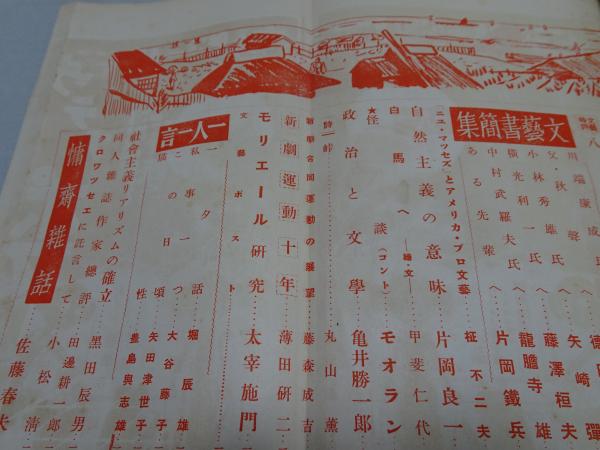 文藝時評
八
文藝書簡集
川端康成氏へ
德田
彈
父・秋聲へ
矢崎
小林秀雄氏へ
藤澤桓夫
横光利一氏へ
龍膽寺雄
中村武羅夫氏へ
片岡鐵兵
ある先輩へ
「ニユ・マツセズ」とアメリカ・プロ文藝
柾不二夫
自然主義の意味
片岡良一
白馬へ
―繪・文―
甲斐仁代
★怪談
(コント)
モオラン
政治と文學
亀井勝一郎
詩 峠
丸山薫
新劇合同運動の展望
藤森成吉
新劇運動十年
薄田研二
モリエール研究
太宰施門
文藝ポスト
一人一言
一事一話
堀辰雄
私タつ
大谷藤子
この日頃
矢田津世子
個性
豊島與志雄
社會主義リアリズムの確立
同人雑誌作家總評
黒田辰男
クロワツセエに託言して
田邊耕一郎
小松清
慵齋雑話
佐藤春夫